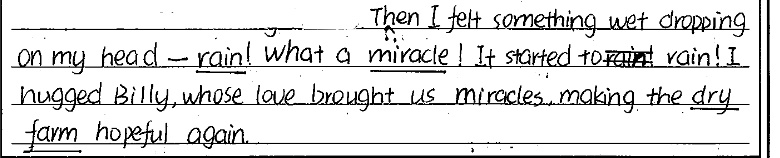 Then I felt something wet dropping
on my head — rain! What a miracle! It started to rain! I
hugged Billy, whose love brought us miracles, making the dry
farm hopeful again.